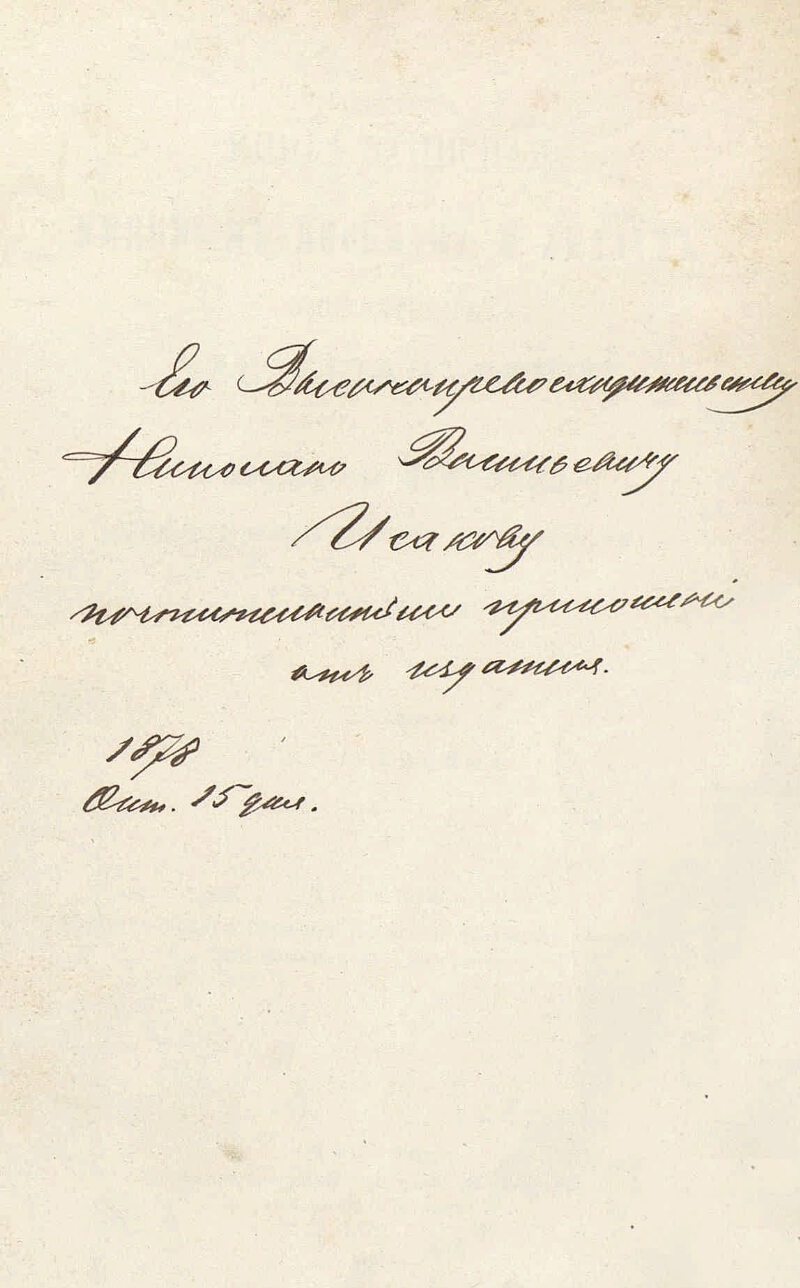 Его Высокопревосходительству
Николаю Васильевичу
Исакову
почтительнѣйшее приношеніе
отъ издателя.
1878
Окт. 15 дня.